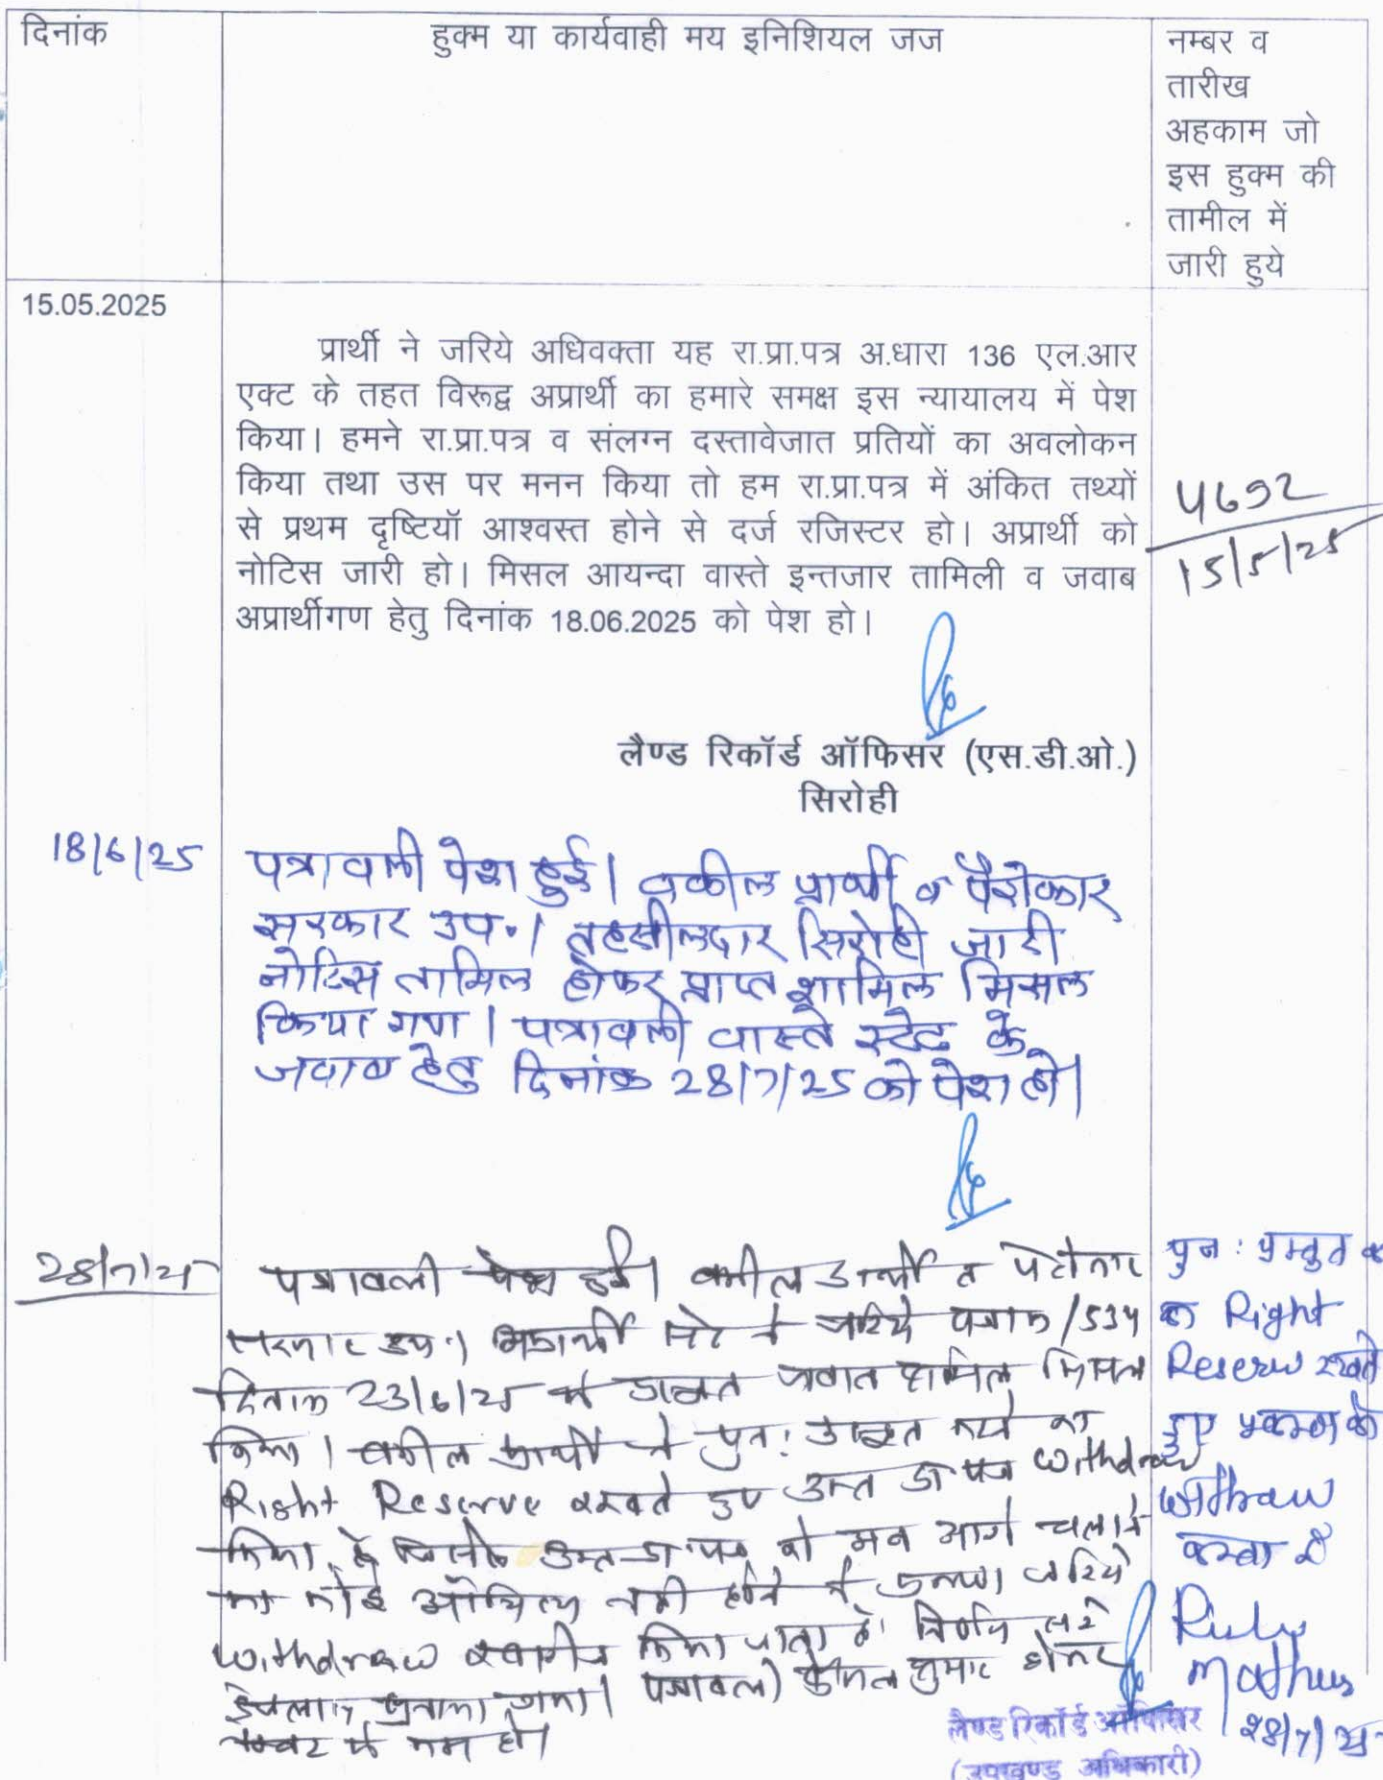 दिनांक
हुक्म या कार्यवाही मय इनिशियल जज
नम्बर व
तारीख
अहकाम जो
इस हुक्म की
तामील में
जारी हुये
15.05.2025
प्रार्थी ने जरिये अधिवक्ता यह रा.प्रा.पत्र अ.धारा 136 एल.आर
एक्ट के तहत विरूद्व अप्रार्थी का हमारे समक्ष इस न्यायालय में पेश
किया। हमने रा.प्रा.पत्र व संलग्न दस्तावेजात प्रतियों का अवलोकन
किया तथा उस पर मनन किया तो हम रा.प्रा.पत्र में अंकित तथ्यों
से प्रथम दृष्टियॉ आश्वस्त होने से दर्ज रजिस्टर हो। अप्रार्थी को
नोटिस जारी हो। मिसल आयन्दा वास्ते इन्तजार तामिली व जवाब
अप्रार्थीगण हेतु दिनांक 18.06.2025 को पेश हो।
4692
15/5/25
लैण्ड रिकॉर्ड ऑफिसर (एस.डी.ओ.)
सिरोही
18/6/25
पत्रावली पेश हुई। वकील प्रार्थी व पैरोकार
सरकार उप.। तहसीलदार सिरोही जारी
नोटिस तामिल होकर प्राप्त शामिल मिसल
किया गया। पत्रावली वास्ते स्टेट के
जवाब हेतु दिनांक 28/7/25 को पेश हो।
28/7/25
पत्रावली पेश हुई। वकील प्रार्थी व पैरोकार
सरकार उप.। अप्रार्थी के जरिये पत्रांक /534
दिनांक 23/6/25 से प्रस्तुत जवाब शामिल मिसल
किया। वकील प्रार्थी ने पुन: प्रस्तुत करने का
Right Reserve रखते हुए उक्त प्रा पत्र withdraw
किया है जिससे उक्त प्रा पत्र को अब आगे चलाने
का कोई औचित्य नही होने से प्रकरण जरिये
withdraw खारीज किया जाता है। निर्णय सरे
इजलास सुनाया गया। पत्रावली फैसल शुमार होकर
नम्बर से कम हो।
पुन: प्रस्तुत
का Right
Reserve रखते
हुए प्रकरण को
withdraw
करता है
Mathur
28/7/25
लैण्ड रिकॉर्ड ऑफिसर
(उपखण्ड अधिकारी)